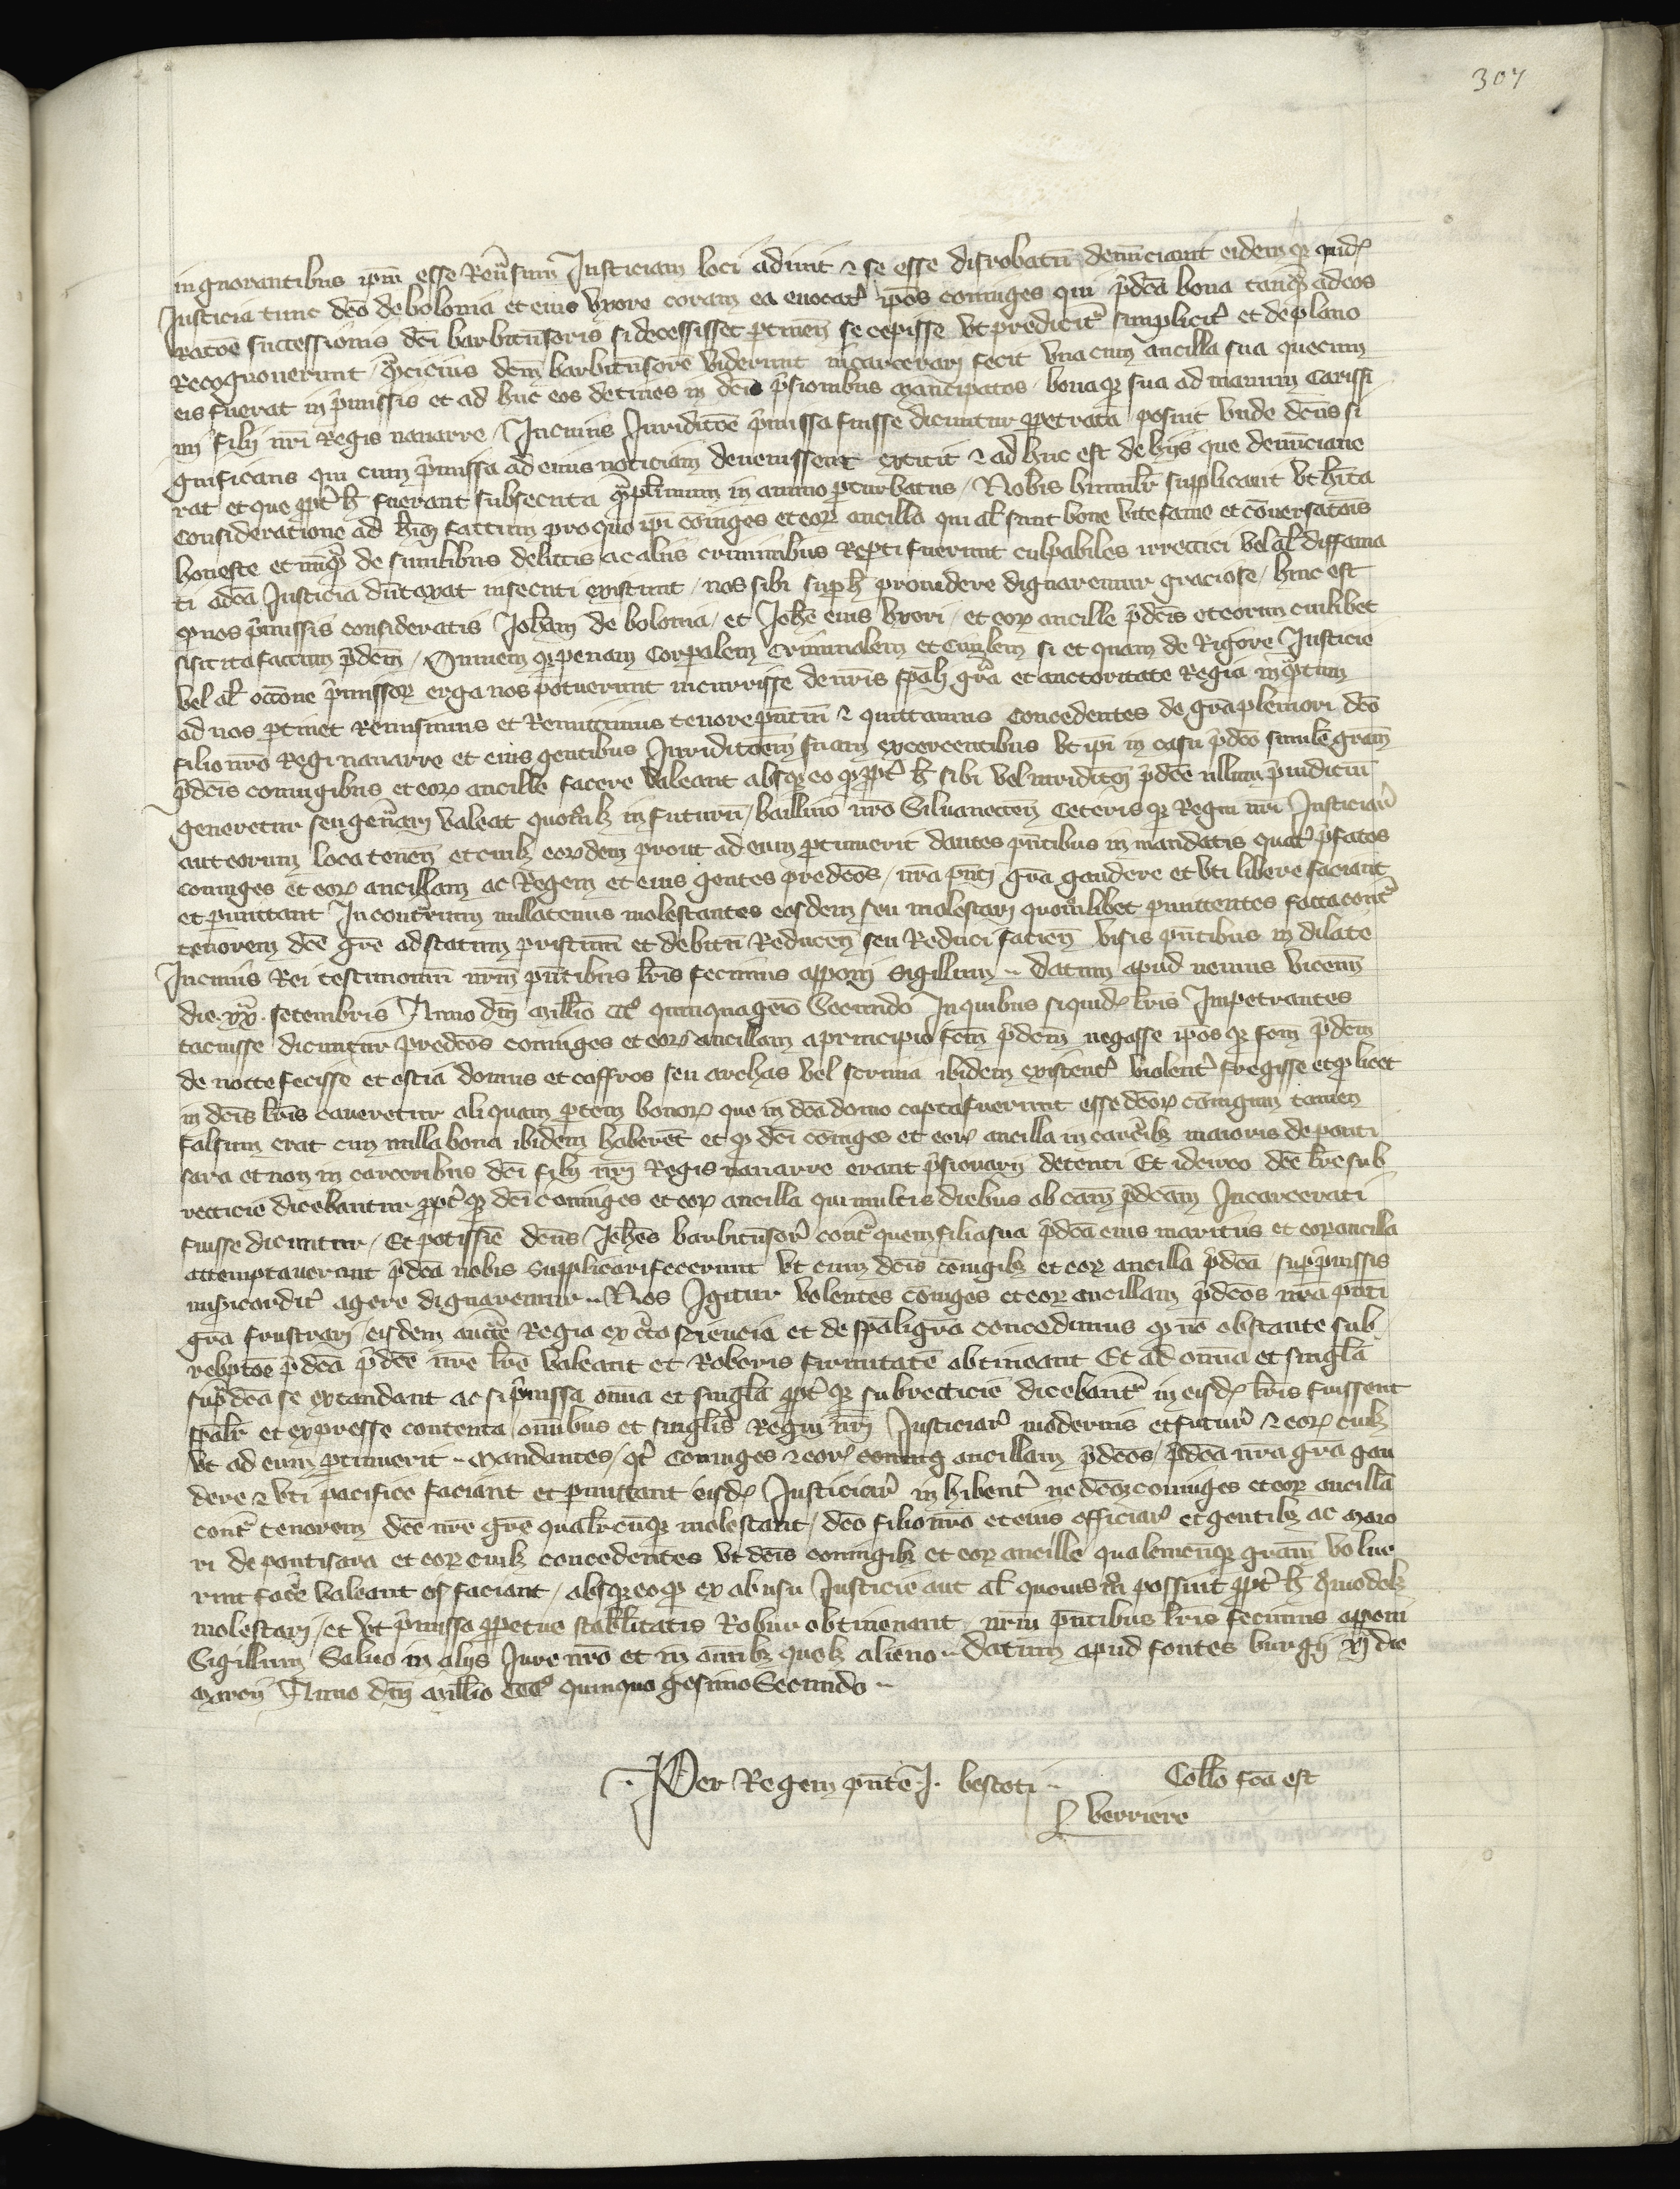 307
ingnorantibus ipm̄ esse Reu̾sum Justiciam loci adiuit ⁊ se esse disrobatū denūciauit eidem qꝫ quidē
Justicia tunc dc̄o de bolonia et eius vxore coram ea euocat̾ ipōs coniuges qui p̾dc̄a bona tanq̾ ad eos
racōe successionis dc̄i barbitūsoris si decessisset ꝑtineñ se cepisse vt predicit̾ simplicit̾ et de plano
Recognouerunt / q̾ cicius dcm̄ barbitūsorē viderunt incarcerarj fecit vna cum ancilla sua que cum
eis fuerat in p̾missis et ad huc eos detines in dc̄is p̾sionibus mancipatos / bonaqꝫ sua ad manum Carissi
mi filij nr̄i Regis nauarre / In cuius Juridic̄oe p̾missa fuisse dicuntur ꝑpetrata / posuit vnde dc̄us si
gnificans qui cum p̾missa ad eius noticiam deuenissent extitit ⁊ ad huc est de hijs que denūciaue
rat et que ꝓpt̾ h̄ fuerant subsecuta q̾plimum in animo ꝑturbatus / Nobis humilr̄ supplicauit vt hīta
consideratione ad hm̄oi factum pro quo ipī coniuges et eoꝝ ancilla qui al̄ sunt bone vite fame et cōuersatōis
honeste et nūq̾ de similibus delictis ac alijs criminibus Reꝑti fuerunt culpabiles irretiti vel al̄ diffama
ti ad ea Justicia dūtaxat insecuti existunt / nos sibi sup h̄ prouidere dignaremur graciose / hinc est
qꝫ nos p̾missis consideratis Joh̄am de bolonia / et Joh̄e eius vxori / et eoꝝ ancille p̾dc̄is et eorum cuilibet
si sit ita factum p̾dc̄m / Omnem qꝫ penam Corꝑalem Criminalem et Ciuilem si et quam de Rigore Justicie
vel al̄ occ̄one p̾missoꝝ erga nos potuerunt incurrisse de nr̄is sp̄ali gr̄a et auctoritate Regia inq̾tum
ad nos ꝑtinet Remisimus et Remittimus tenore pñtiū ⁊ quittamus Concedentes de gr̄a pleniori dc̄o
filio nr̄o Regi nauarre et eius gentibus Juridic̄oem suam exercentibus vt ipī in casu p̾dc̄o similē gr̄am
p̾dc̄is coniugibus et eoꝝ ancille facere valeant absqꝫ eo qꝫ ꝓpt̾ h̄ sibi vel iuridic̄oī p̾dc̄e nllum p̾iudiciū
generetur seu gen̾arj valeat quomōlꝫ in futurū / bailliuo nr̄o Siluanecteñ Ceterisqꝫ Regni nr̄i Justiciar̾
aut eorum loca teneñ et cuilꝫ eoꝝdem prout ad eum ꝑtinuerit dantes pñtibus in mandatis quat̾ p̾fatos
coniuges et eoꝝ ancillam ac Regem et eius gentes predc̄os / nr̄a pñti gr̄a gaudere et vti libere faciant
et ꝑmittant In contrarium nullatenus molestantes eosdem seu molestarj quomōlibet ꝑmittentes facta cont̾
tenorem dc̄e gr̄e ad statum pristinū et debitū Reduceñ seu Reduci facieñ visis pñtibus indilate
In cuius Rei testimoniū nr̄m pñtibus lr̄is fecimus apponj Sigillum ⸫ datum apud nemus vicenñ
die xxᵃ setembris Anno dnī mill̄io CCCᵒ quinquagesīo Secundo In quibus siquidē lr̄is Impetrantes
tacuisse dicuntur predc̄os coniuges et eoꝝ ancillam a principio fcm̄ p̾dcm̄ negasse ipōsqꝫ fcm̄ p̾dcm̄
de nocte fecisse et ostia domus et coffros seu archas vel scrinia ibidem existent̾ violent̾ fregisse et qꝫ licet
in dc̄is lr̄is caueretur aliquam ꝑtem bonoꝝ que in dc̄a domo capta fuerunt esse dc̄oꝝ cōiugum tamen
falsum erat cum nulla bona ibidem haberēt et qꝫ dc̄i cōiuges et eoꝝ ancilla in carc̾ibꝫ maioris de ponti
sara et non in carceribus dc̄i filij nr̄j Regis nauarre erant p̾sionarij detenti Et idcirco dc̄e lr̄e sub
recticie dicebantur ꝓpt̾ qꝫ dc̄i coniuges et eoꝝ ancilla qui multis diebus ob cām p̾dc̄am Incarcerati
fuisse dicuntur / Et potissīe dc̄us Joh̄es barbitūsor̾ cont̾ quem filia sua p̾dc̄a eius maritus et eoꝝ ancilla
attemptauerant p̾dc̄a nobis supplicari fecerunt vt cum dc̄is coniugibꝫ et eoꝝ ancilla p̾dc̄a / sup p̾missis
misericordit̾ agere dignaremur ⸫ Nos Igitur volentes cōiuges et eoꝝ ancillam p̾dc̄os nr̄a pñti
gr̄a frustrarj / eisdem auct̾e Regia ex c̾ta sciencia et de sp̄ali gr̄a concedimus qꝫ nō obstante sub
reptōe p̾dc̄a p̾dc̄e nr̄e lr̄e valeant et Roboris firmitatē obtineant Et ad omīa et singl̄a
sup̾dc̄a se extendant ac si p̾missa omīa et singl̄a ꝓpt̾ qꝫ subrecticie dicebant̾ in eisdē lr̄is fuissent
sp̄alr̄ et expresse contenta / omībus et singl̄is Regni nr̄j Justiciar̾ modernis et futur̾ ⁊ eoꝝ cuilꝫ
vt ad eum ꝑtinuerit ⸫ Mandantes / qt̾ Coniuges ⁊ eoꝝ coniug ancillam p̾dc̄os / p̾dc̄a nr̄a gr̄a gau
dere ⁊ vti pacifice faciant et ꝑmittant eisdē Justiciar̾ inhibent̾ ne dc̄os coniuges et eoꝝ ancillā
cont̾ tenorem dc̄e nr̄e gr̄e qualr̄cūqꝫ molestant / dc̄o filio nr̄o et eius officiar̾ et gentibꝫ ac maio
ri de pontisara et eoꝝ cuilꝫ concedentes vt dc̄is coniugibꝫ et eoꝝ ancille qualemcūqꝫ gr̄am volue
rint fac̾e valeant et faciant / absqꝫ eo qꝫ ex abusu Justicie aut al̄ quouis mō possint ꝓpt̾ h̄ q̾modolꝫ
molestarj / et vt p̾missa ꝑpetue stabilitatis Robur obtineant nr̄m pñtibus lr̄is fecimus apponi
Sigillum Saluo in alijs Jure nr̄o et in omībꝫ quolꝫ alieno ⸫ Datum apud fontes burgij xj die
marcij Anno dnī mill̄io CCCᵒ quinquagesimo Secundo ⸫
. Per Regem pñte .J. bescoti ⸫ Coll̄o fc̄a est
berriere